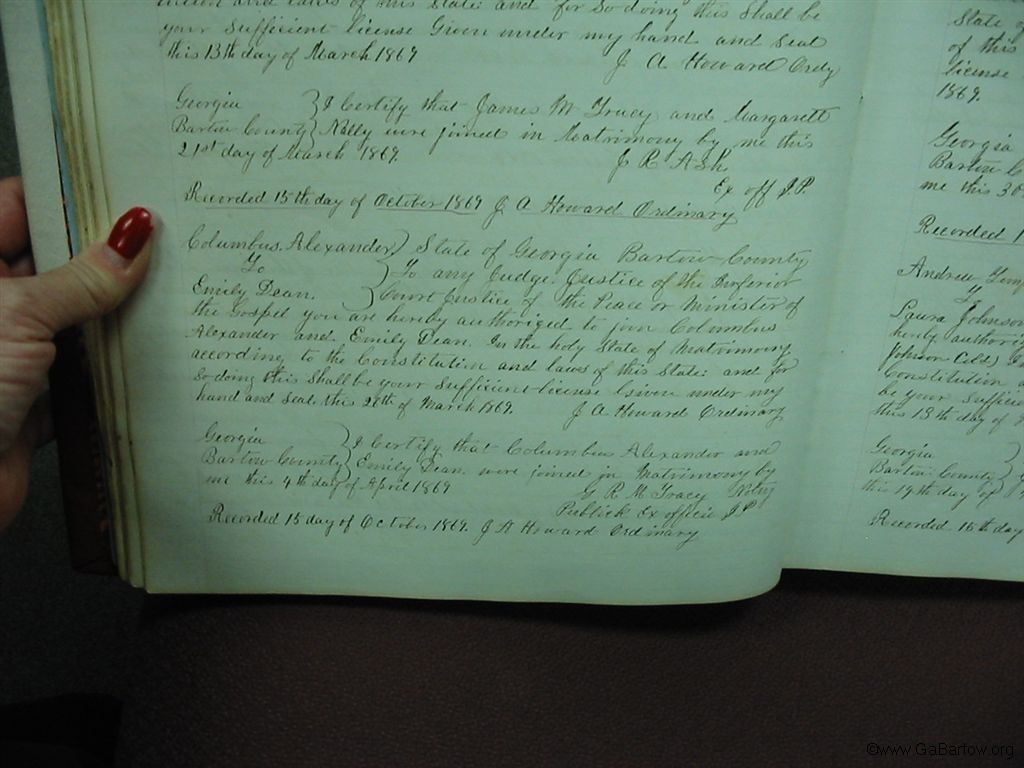 this State: and for so doing this Shall be
your Sufficient license Given under my hand and Seal
this 13th day of March 1869
J. A. Howard Ordy
Georgia } I Certify that James M and Margarett
Bartow County } Nally were joined in Matrimony by me this
21st day of March 1869.
J R Ash
Ex off J.P.
Recorded 15th day of October 1869 J A Howard Ordinary
Columbus Alexander } State of Georgia Bartow County
To } To any Judge, Justice of the Inferior
Emily Dean. } Court Justice of the Peace or Minister of
the Gospel you are hereby authorized to join Columbus
Alexander and Emily Dean. In the holy State of Matrimony
according to the Constitution and laws of this State: and for
So doing this Shall be your Sufficient license Given under my
hand and Seal this 26th of March 1869. J A Howard Ordinary
Georgia } I Certify that Columbus Alexander and
Bartow County } Emily Dean. were joined in Matrimony by
me this 4th day of April 1869
G R M Tracy Notry
Publick Ex officio J P
Recorded 15 day of October 1869. J A Howard Ordinary
State of
of this
license
1869.
Georgia
Bartow
me this 30
Recorded
Andrew
To
Laura Johnson
hereby
Johnson
Constitution
be your
this 13th day of
Georgia
Bartow County
this 19th day of
Recorded 15th day
©www.GaBartow.org